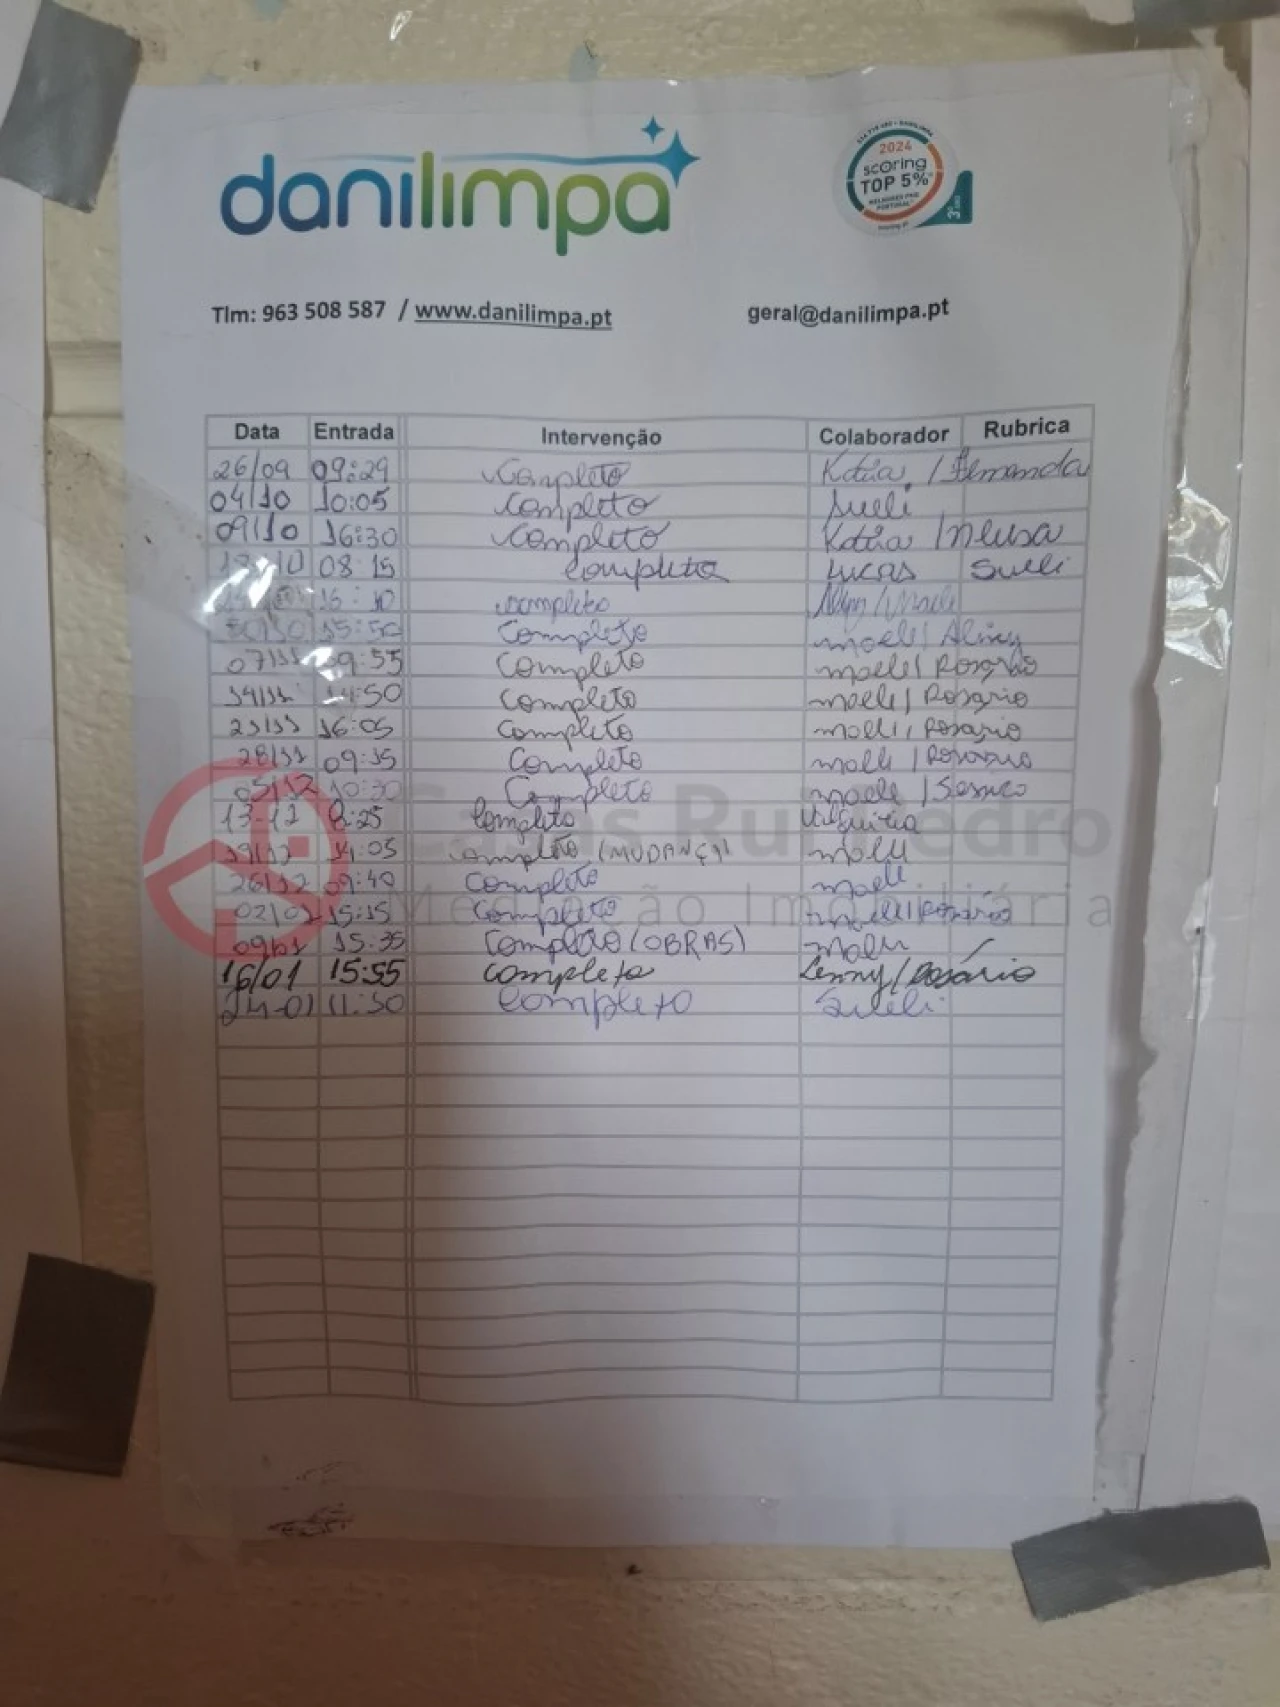 danilimpa
2024
scoring
TOP 5%
Tlm: 963 508 587 / www.danilimpa.pt
geral@danilimpa.pt
Data Entrada Intervenção Colaborador Rubrica
26/09 09:29 Completo Kátia / Fernanda
04/10 10:05 Completo Sueli
09/10 16:30 Completo Kátia / Neusa
10 08:15 Completo Lucas Sueli
completo
30/10 15:50 Completo moeli / Aliny
07/11 09:55 Completo moeli / Rosário
14/11 14:50 Completo moeli / Rosário
21/11 16:05 Completo moeli / Rosário
28/11 09:15 Completo moeli / Rosário
05/12 10:30 Completo moeli /
13-12 8:25 Completo Valquiria
19/12 14:05 Completo (MUDANÇA) moeli
26/12 09:40 Completo moeli
02/01 15:15 Completo moeli / Rosário
09/01 15:35 Completo (OBRAS) moeli
16/01 15:55 completo Lenny / Rosário
24-01 11:30 Completo Sueli
Casas Rui Pedro
Mediação Imobiliária